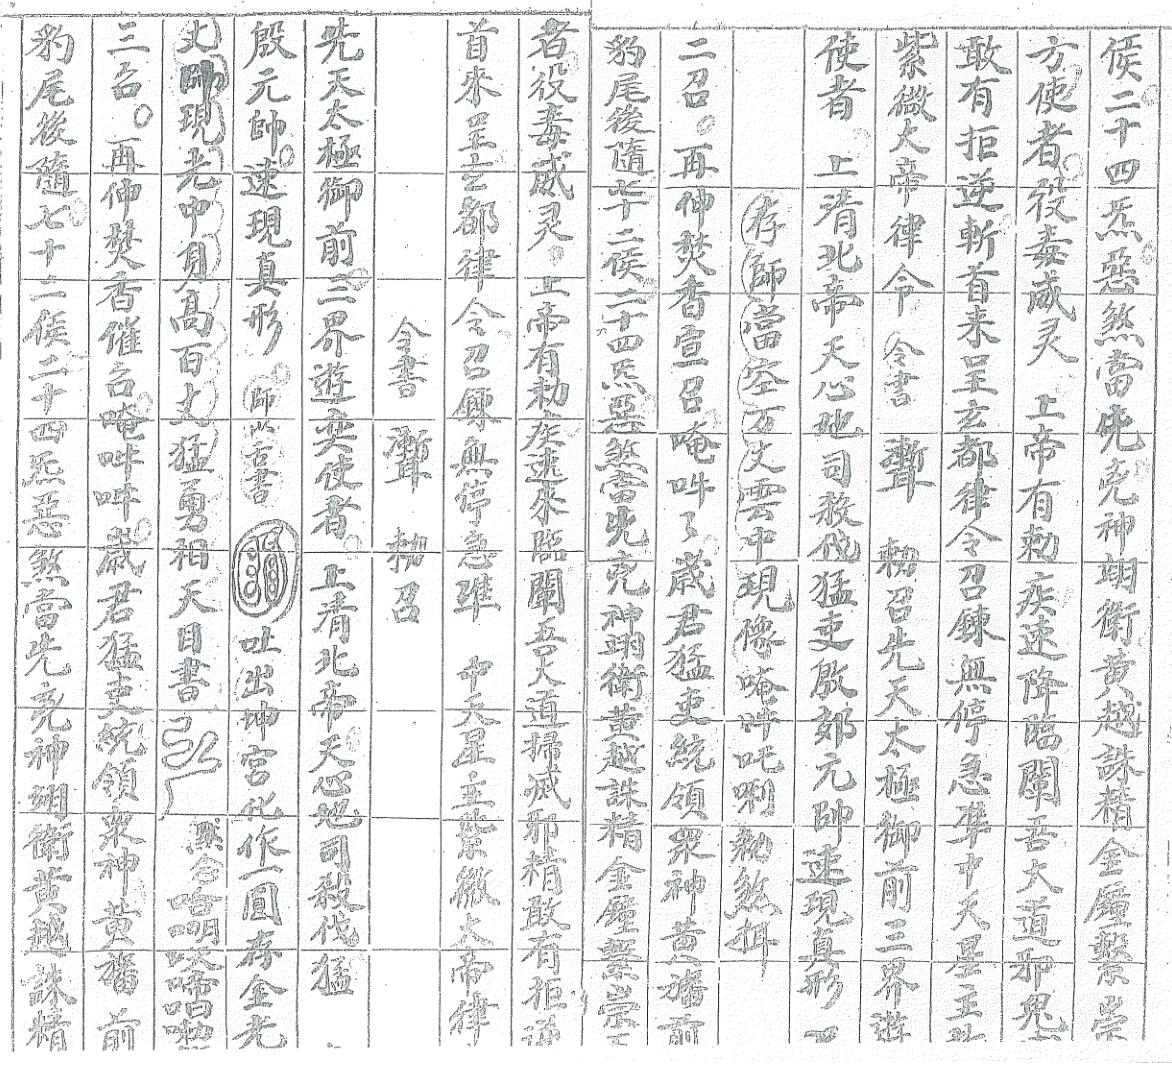 侯二十四炁惡煞當先𠒇神翊衛黃越誅精金鐘繫祟
方使者役毒威灵　上帝有勅疾速降臨闡吾大道邪鬼
敢有拒逆斬首来呈玄都律令召鍊無停急準中天星主
紫微大帝律令　令書　勅召先天太極御前三界遊
使者　上清北帝天心地司殺伐猛吏殷郊元帥速現真形
存師當空万丈雲中現像唵吽吒唎勅煞
二召。再伸焚香宣召唵吽々歳君猛吏統領眾神黃旛前
豹尾後隨七十二侯二十四炁惡煞當先𠒇神翊衛黃越誅精金鐘繫祟
者役毒威灵。上帝有勅疾速來臨闡吾大道掃滅邪精敢有拒逆
首來呈玄都律令召鍊無停急準　中天星主紫微大帝律
令書　勅召
先天太極御前三界遊奕使者。上清北帝天心地司殺伐猛
殷元帥。速現真形　師以書　吐出坤宮化作一圓存金光
丈帥現光中身高百丈猛勇相天目書　默念
三召。再伸焚香催召唵吽吽歳君猛吏統領眾神黃旛前
豹尾後隨七十二侯二十四炁惡煞當先𠒇神翊衛黃越誅精